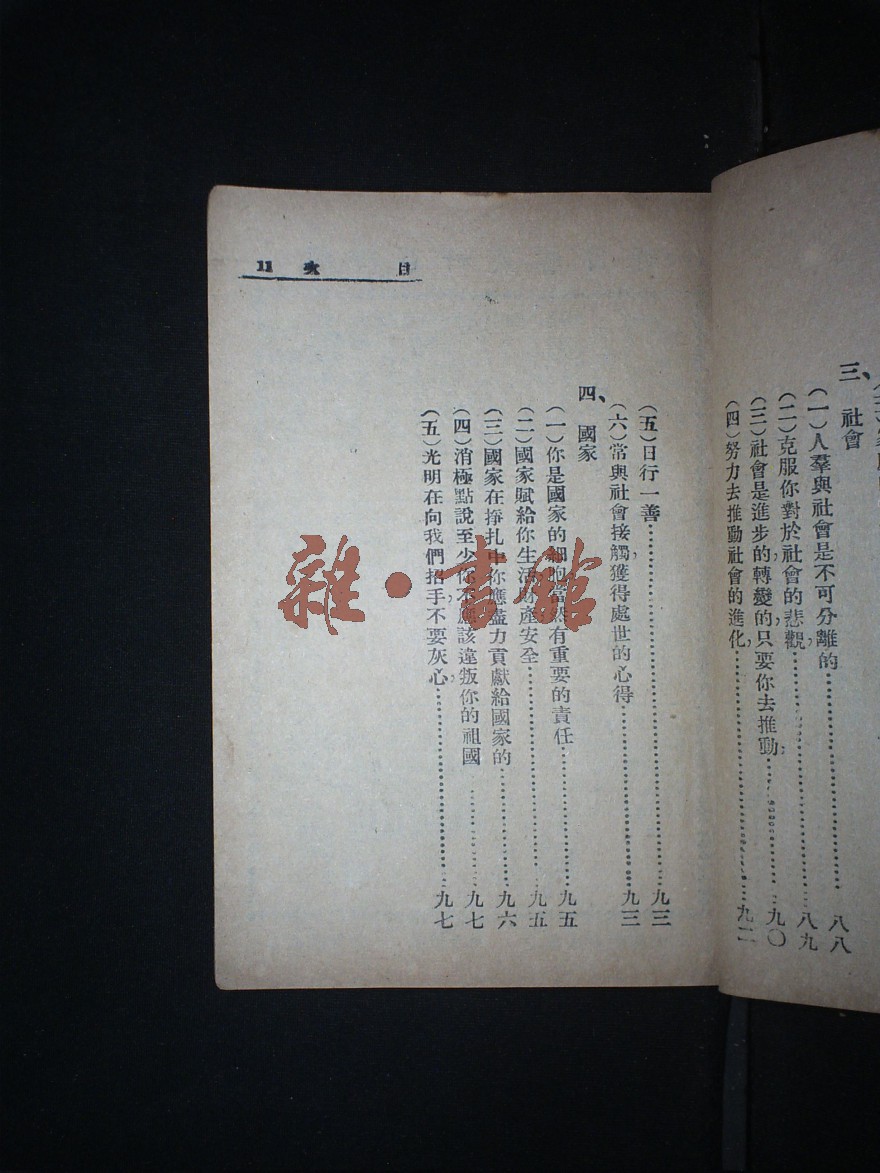 三、社會
(一)人羣與社會是不可分離的……八八
(二)克服你對於社會的悲觀,……八九
(三)社會是進步的,轉變的只要你去推動,……九〇
(四)努力去推動社會的進化,……九二
目 次 11
(五)日行一善……九三
(六)常與社會接觸,獲得處世的心得……九三
四、國家
(一)你是國家的細胞當然有重要的責任……九五
(二)國家賦給你生活物產安全……九五
(三)國家在掙扎中,你應盡力貢獻給國家的……九六
(四)消極點說,至少你不應該違叛你的祖國……九七
(五)光明在向我們招手,不要灰心,……九七
雜·書館